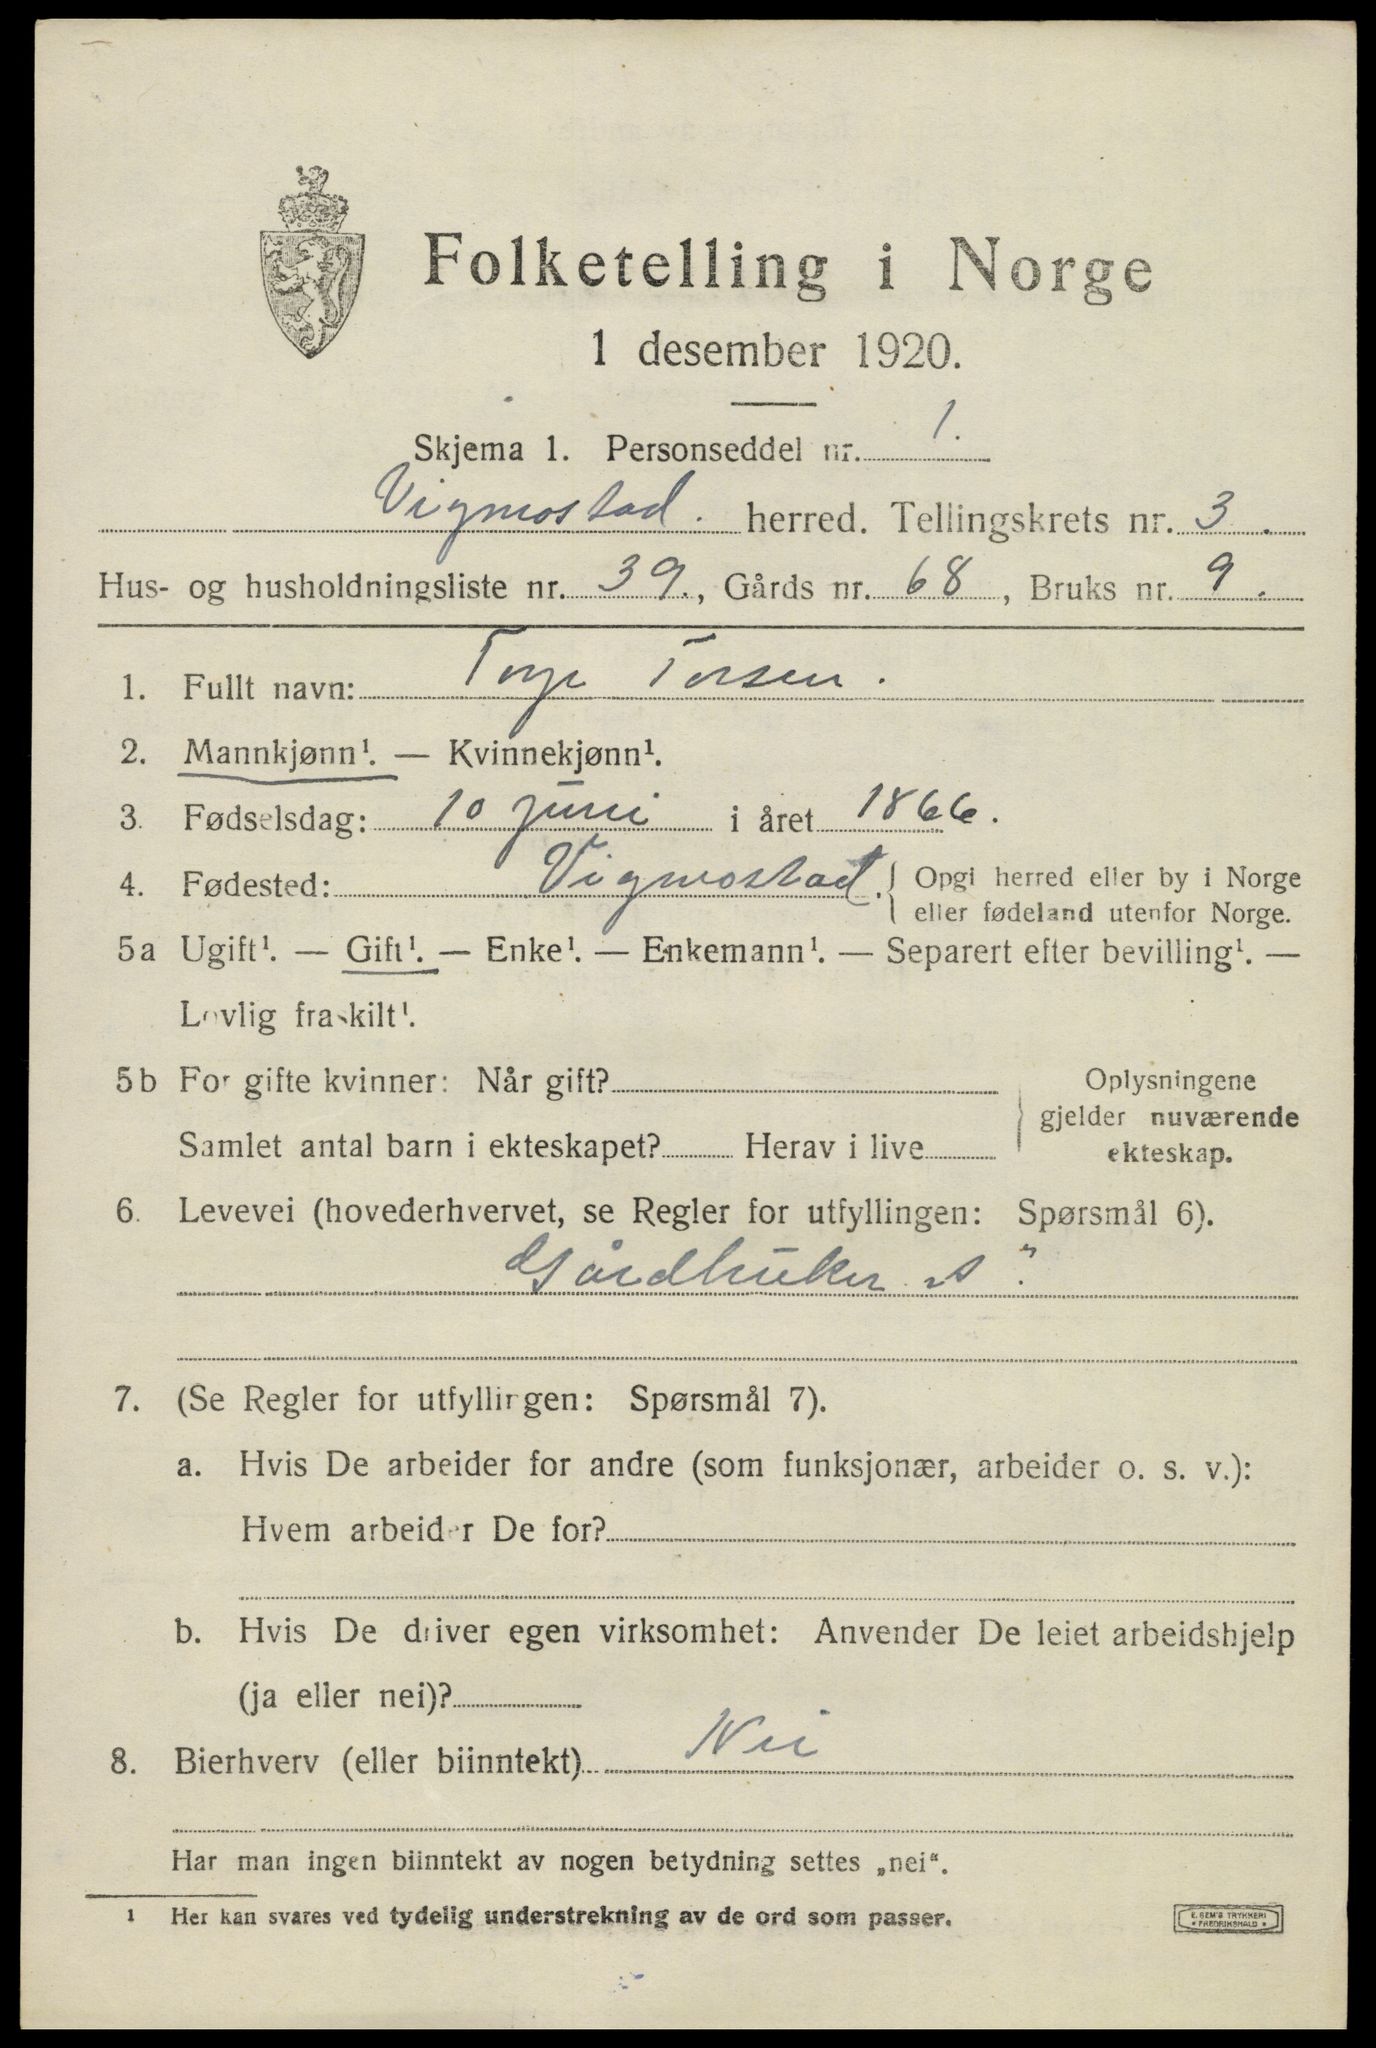 Folketelling i Norge
1 desember 1920.
Skjema 1. Personseddel nr. 1.
Vigmostad. herred. Tellingskrets nr. 3.
Hus- og husholdningsliste nr. 39., Gårds nr. 68, Bruks nr. 9.
1. Fullt navn: Torje Torsen.
2. Mannkjønn¹. — Kvinnekjønn¹.
3. Fødselsdag: 10 juni i året 1866.
4. Fødested: Vigmostad. { Opgi herred eller by i Norge
eller fødeland utenfor Norge.
5a Ugift¹. — Gift¹. — Enke¹. — Enkemann¹. — Separert efter bevilling¹. —
Lovlig fraskilt¹.
5b For gifte kvinner: Når gift?
Samlet antal barn i ekteskapet? Herav i live
Oplysningene
gjelder nuværende
ekteskap.
6. Levevei (hovederhvervet, se Regler for utfyllingen: Spørsmål 6).
Gårdbruker „s“.
7. (Se Regler for utfyllingen: Spørsmål 7).
a. Hvis De arbeider for andre (som funksjonær, arbeider o. s. v.):
Hvem arbeider De for?
b. Hvis De driver egen virksomhet: Anvender De leiet arbeidshjelp
(ja eller nei)?
8. Bierhverv (eller biinntekt) Nei
Har man ingen biinntekt av nogen betydning settes „nei“.
1 Her kan svares ved tydelig understrekning av de ord som passer.
E. SEM'S TRYKKERI
* FREDRIKSHALD *